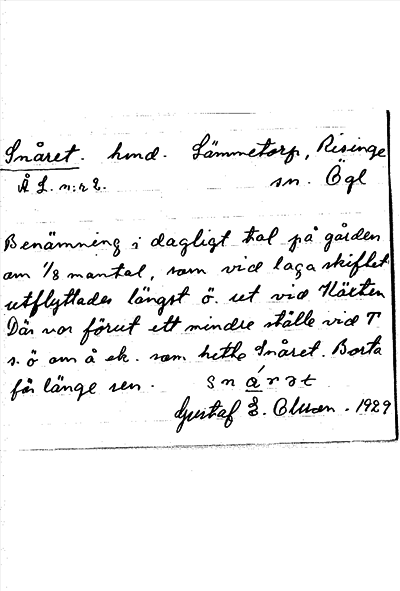 Snåret. hmd. Lämmetorp, Risinge
Å L. n:r 2. sn. Ögl
Benämning i dagligt tal på gården
om 1/8 mantal, som vid laga skiftet
utflyttades längst ö. ut vid Näxten
Där var förut ett mindre ställe vid T
s. ö om å ek. som hette Snåret. Borta
för länge sen. snårət
Gustaf E. Olsson. 1929